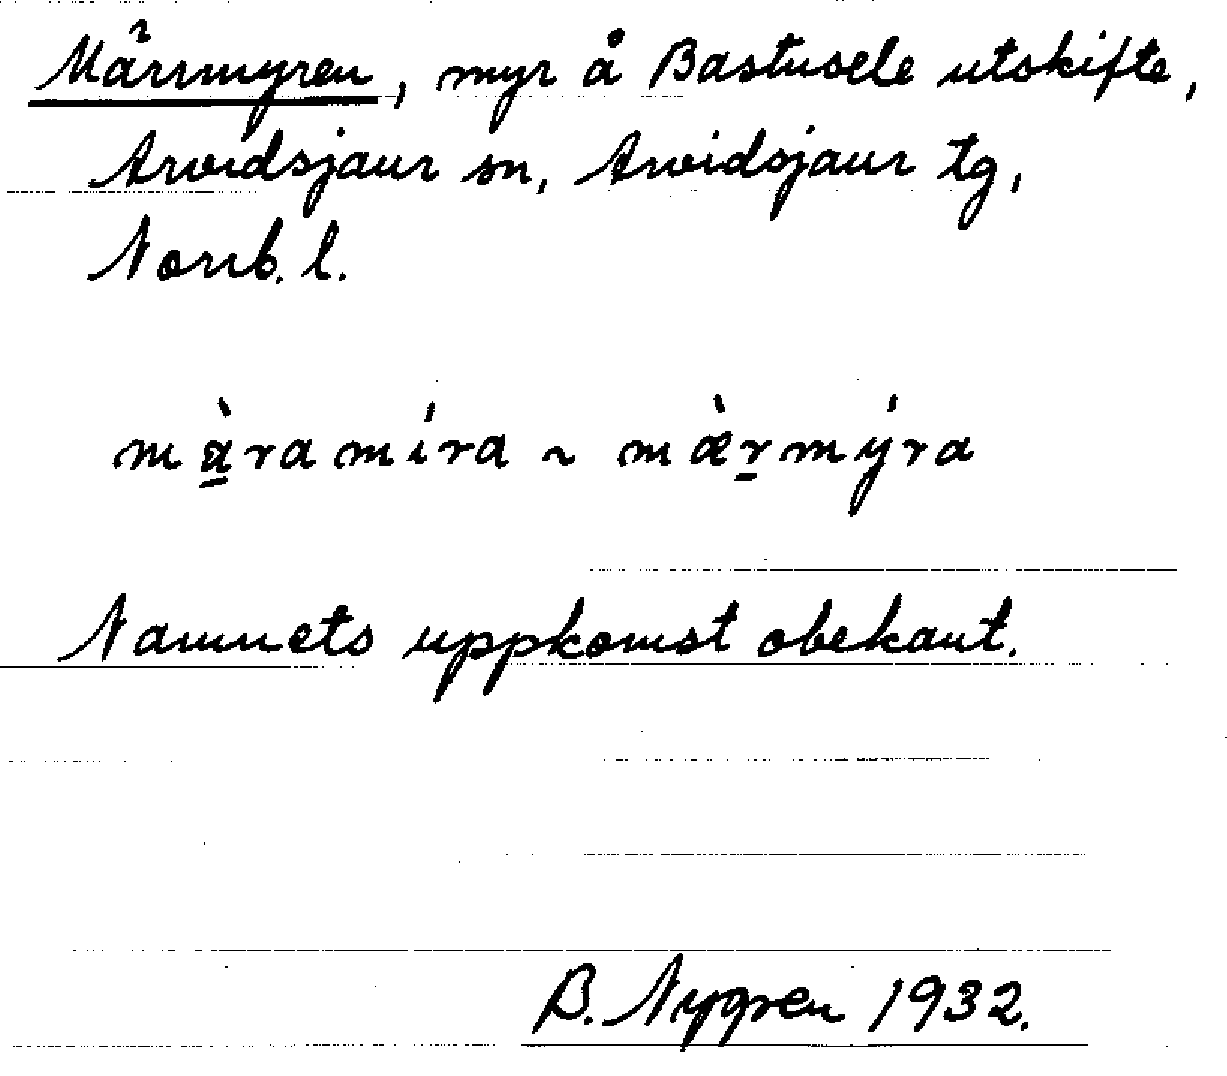 Märrmyren, myr å Bastusele utskifte,
Arvidsjaur sn, Arvidsjaur tg,
Norrb. l.
mà̲ramíra ~ mæ̀r̲mýra
Namnets uppkomst obekant.
B. Nygren 1932.